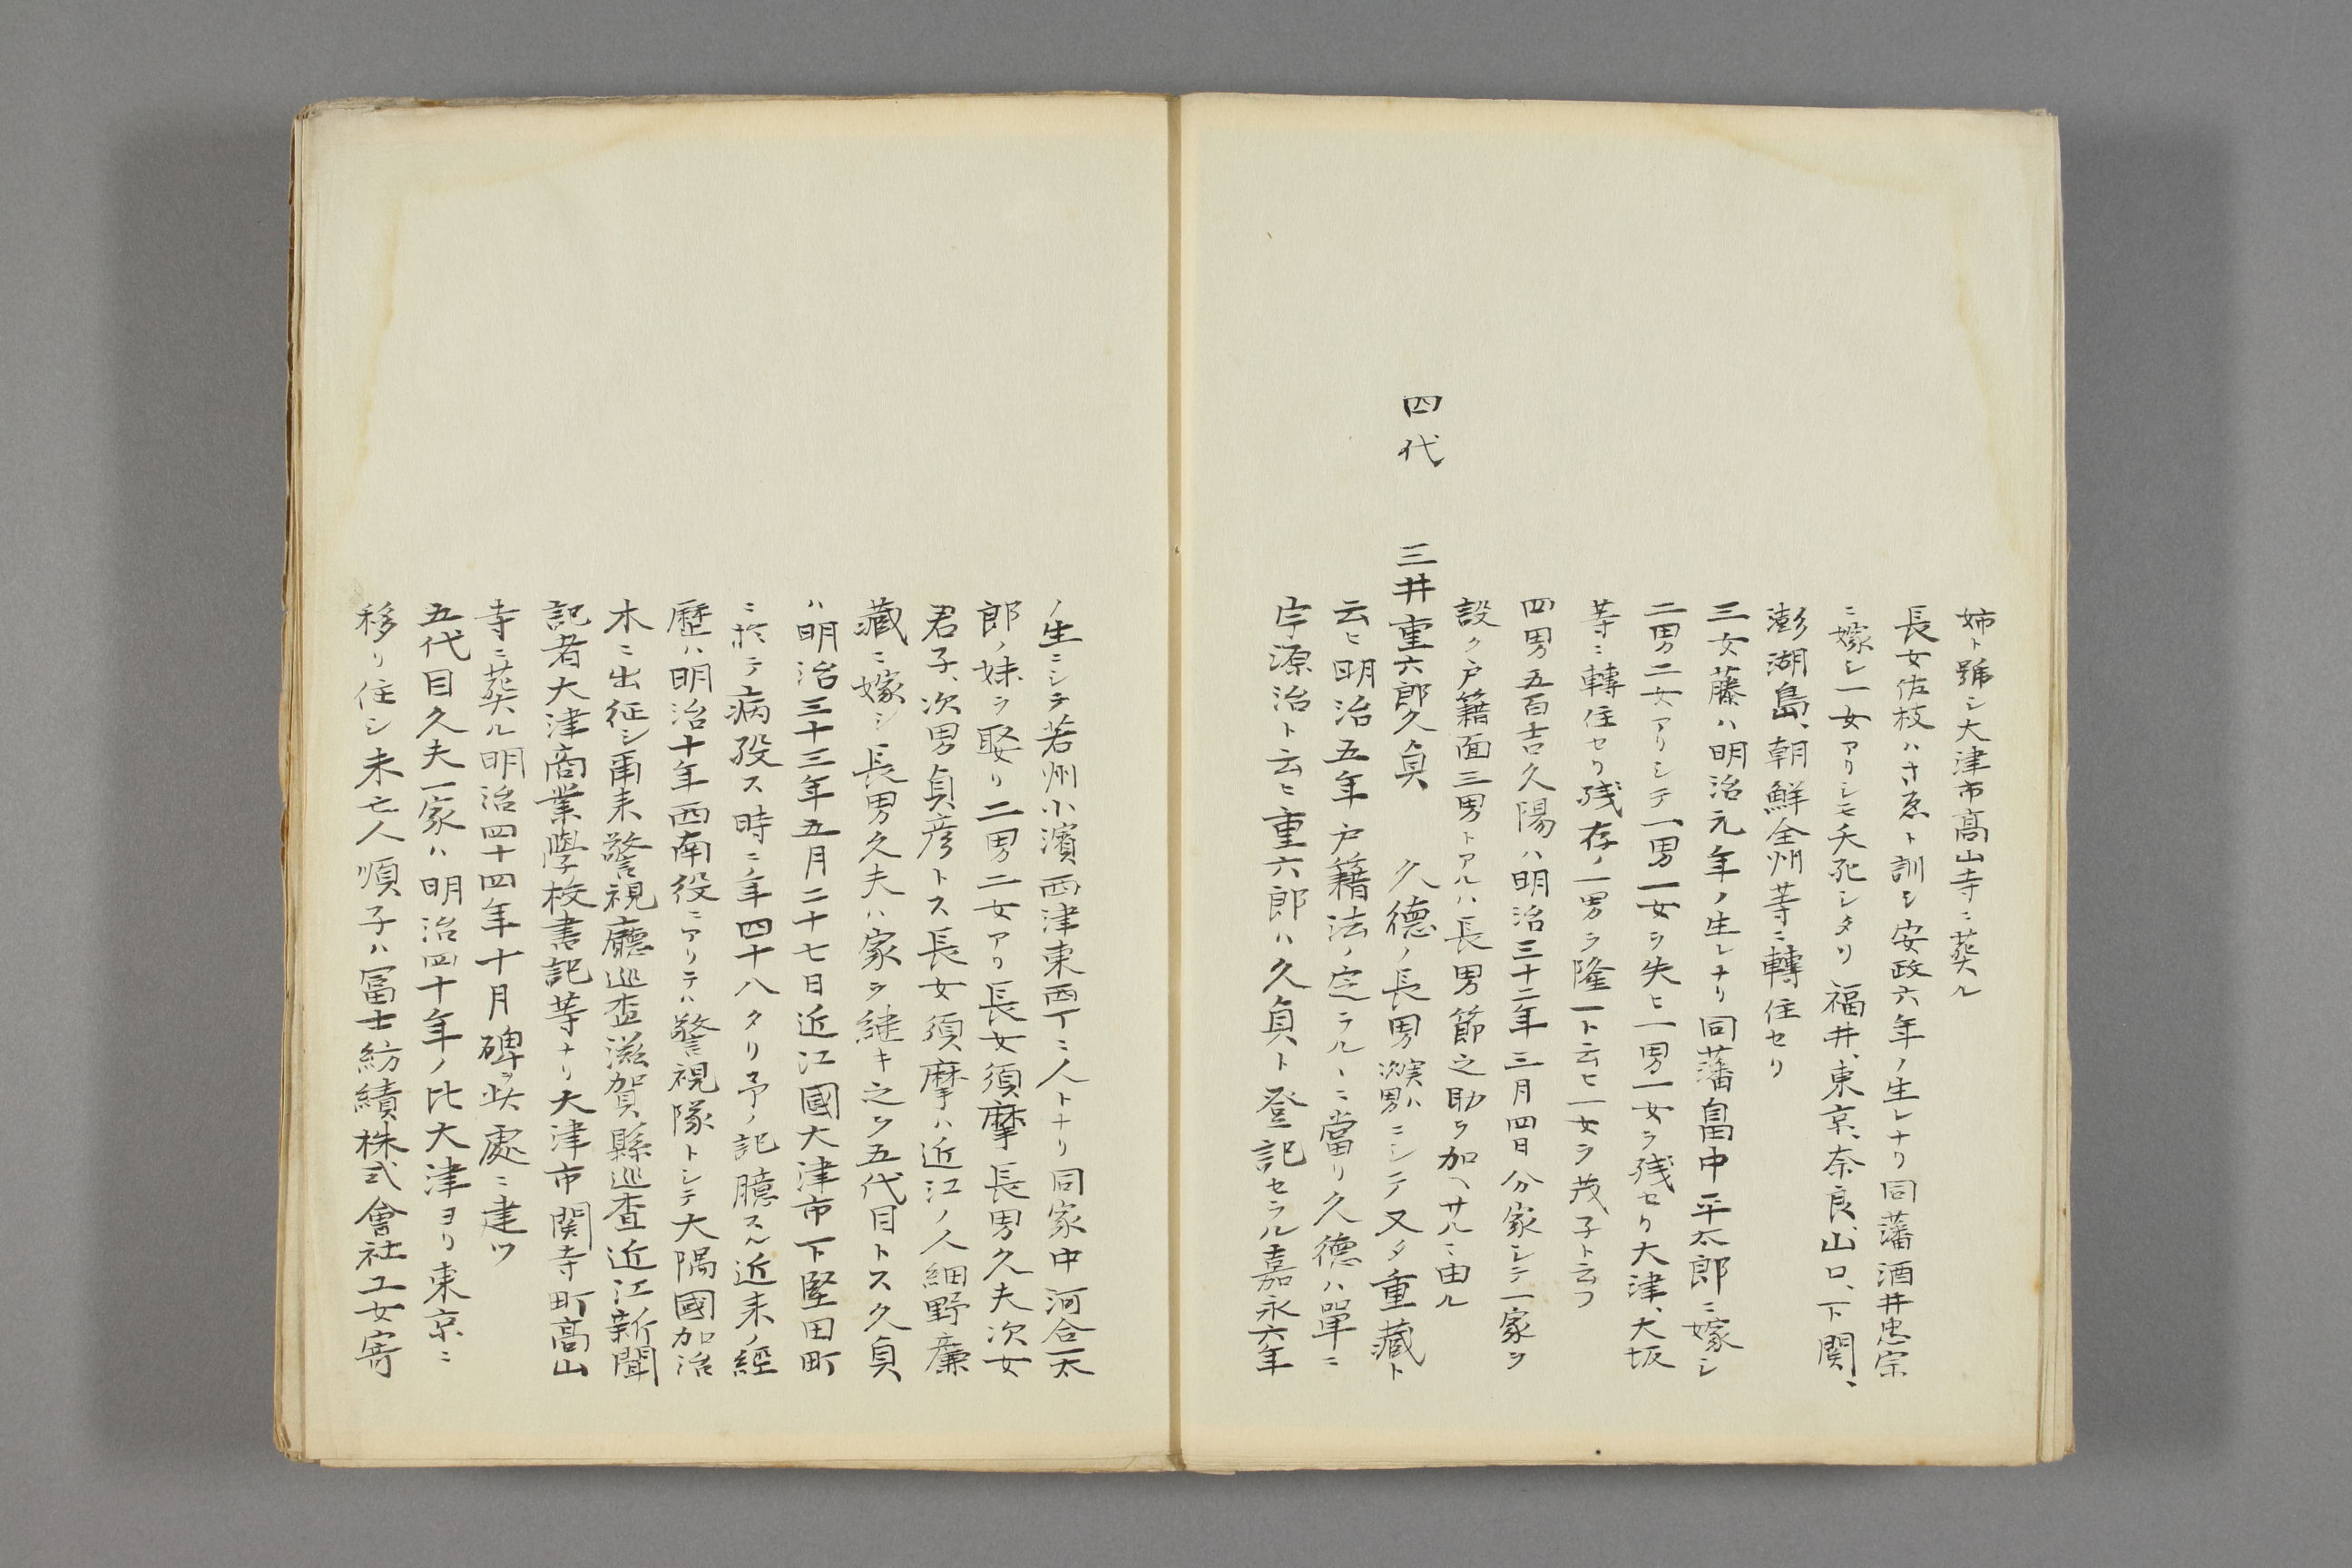 姉ト號シ大津市髙山寺ニ葬ル
長女佐枝ハさゑト訓シ安政六年ノ生レナリ同藩酒井忠宗
ニ嫁シ一女アリシモ夭死シタリ福井、東京、奈良、山口、下関、
澎湖島、朝鮮全州等ニ轉住セリ
三女藤ハ明治元年ノ生レナリ同藩畠中平太郎ニ嫁シ
二男二女アリシテ一男一女ヲ失ヒ一男一女ヲ残セリ大津、大坂
等ニ轉住セリ残存ノ一男ヲ隆一ト云ヒ一女ヲ茂子ト云フ
四男五百吉久陽ハ明治三十二年三月四日分家シテ一家ヲ
設ク戸籍面三男トアルハ長男節之助ヲ加ヘサルニ由ル
四代 三井重六郎久貞 久德ノ長男実ハ次男ニシテ又タ重藏ト
云ヒ明治五年戸籍法ノ定ラルヽニ當リ久德ハ單ニ
字源治ト云ヒ重六郎ハ久貞ト登記セラル嘉永六年
ノ生ニシテ若州小濱西津東西丁ニ人トナリ同家中河合太
郎ノ妹ヲ娶リ二男二女アリ長女須摩長男久夫次女
君子、次男貞彦トス長女須摩ハ近江ノ人細野廉
藏ニ嫁シ長男久夫ハ家ヲ継キ之ヲ五代目トス久貞
ハ明治三十三年五月二十七日近江國大津市下堅田町
ニ於テ病歿ス時ニ年四十八タリ予ノ記臆スル近来ノ經
歷ハ明治十年西南役ニアリテハ警視隊トシテ大隅國加治
木ニ出征シ甫来警視廳巡査滋賀縣巡査近江新聞
記者大津商業學校書記等ナリ大津市関寺町髙山
寺ニ葬ル明治四十四年十月碑ヲ此處ニ建ツ
五代目久夫一家ハ明治四十年ノ比大津ヨリ東京ニ
移リ住シ未亡人順子ハ冨士紡績株式會社工女寄